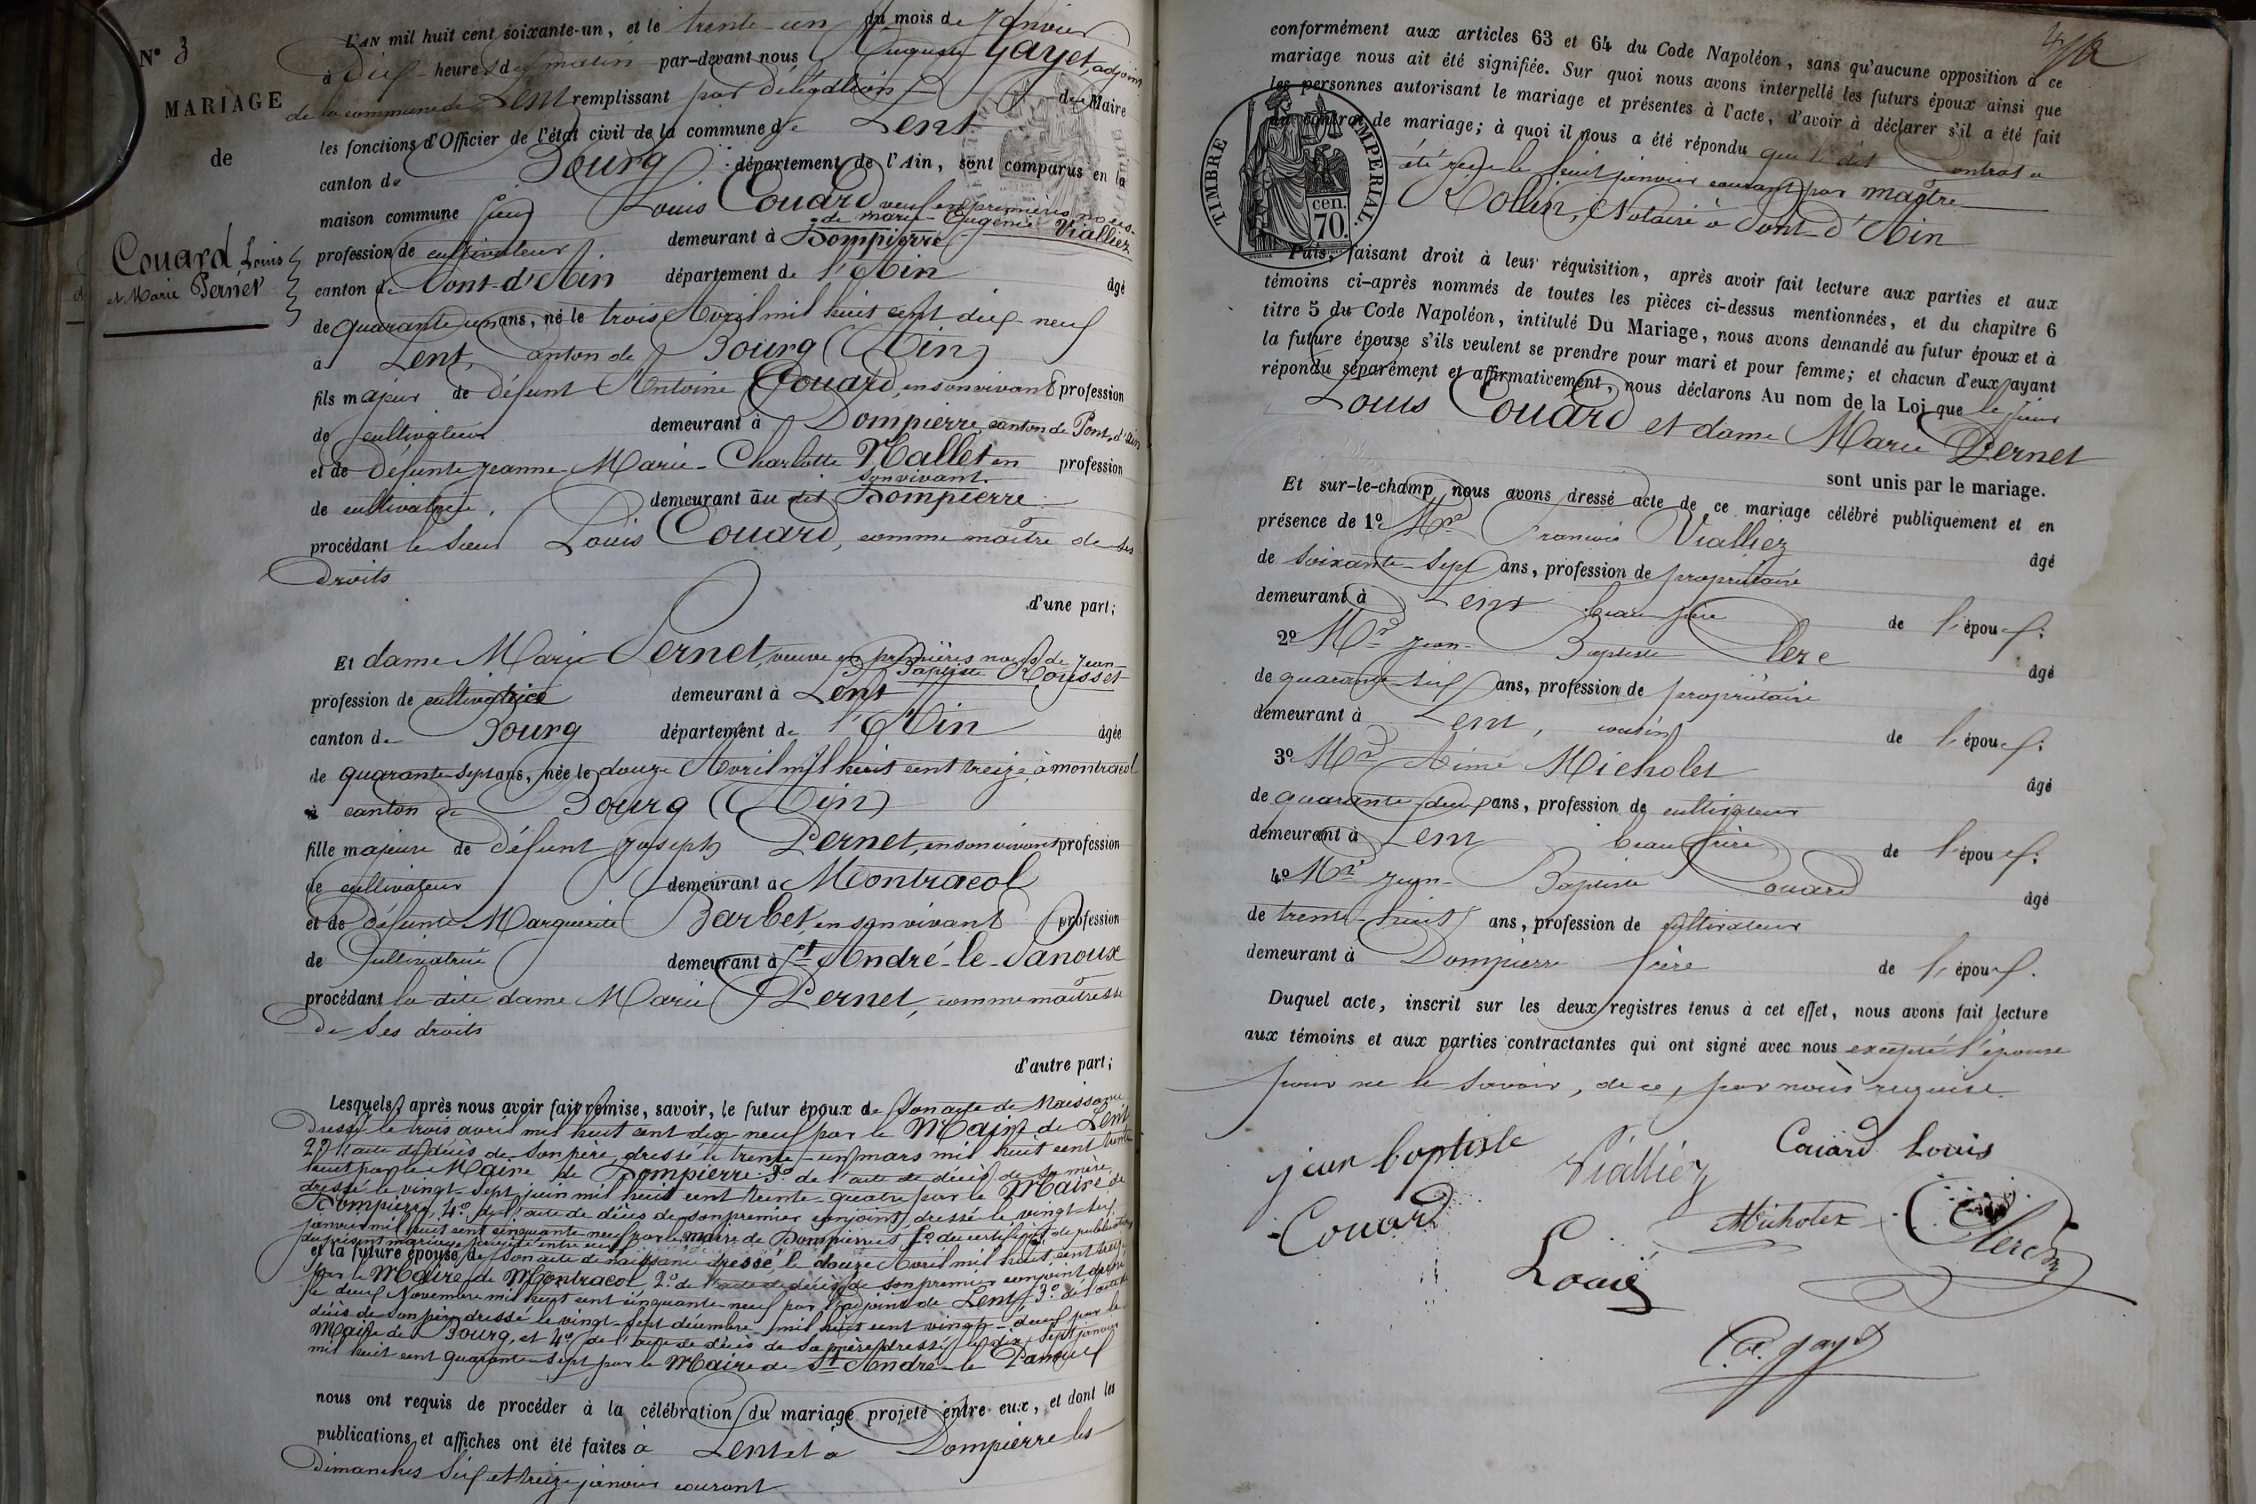 N° 3
MARIAGE
de
Couard Louis
et Marie Pernet
L'AN mil huit cent soixante-un, et le trente-un du mois de Janvier
à dix heures du matin par-devant nous Auguste Gayet, adjoint
de la commune de Lent remplissant par délégation du Maire
les fonctions d'Officier de l'état civil de la commune de Lent
canton de Bourg département de l'Ain, sont comparus en la
maison commune sieur Louis Couard veuf en premières noces
de marie-Eugénie Vialliez
profession de cultivateur demeurant à Dompierre
canton de Pont-d'Ain département de l'Ain âgé
de quarante un ans, né le trois Avril mil huit cent dix-neuf
à Lent, canton de Bourg (Ain)
fils majeur de défunt Antoine Couard, en son vivant profession
de cultivateur demeurant à Dompierre canton de Pont-d'Ain
et de défunte Jeanne-Marie-Charlotte Mallet en profession
son vivant
de cultivatrice, demeurant au dit Dompierre
procédant le sieur Louis Couard, comme maître de ses
droits
d'une part;
Et dame Marie Pernet, veuve en premières noces de Jean-
Baptiste Rousset
profession de cultivatrice demeurant à Lent
canton de Bourg département de l'Ain âgée
de quarante-sept ans, née le douze Avril mil huit cent treize à montracol
à canton de Bourg (Ain)
fille majeure de défunt Joseph Pernet, en son vivant profession
de cultivateur demeurant à Montracol
et de défunte Marguerite Barbet, en son vivant profession
de cultivatrice demeurant à St André-le-Panoux
procédant la dite dame Marie Pernet, comme maîtresse
de ses droits
d'autre part;
Lesquels, après nous avoir fait remise, savoir, le futur époux de son acte de Naissance
dressé le trois avril mil huit cent dix neuf par le Maire de Lent
2° l'acte de décès de son père, dressé le trente-un mars mil huit cent trente
huit par le Maire de Dompierre 3° de l'acte de décès de sa mère
dressé le vingt-sept juin mil huit cent trente-quatre par le Maire de
Dompierre, 4° de l'acte de décès de son premier conjoint, dressé le vingt-six
janvier mil huit cent cinquante-neuf par le maire de Dompierre et 5° du certificat de publication
du présent mariage projeté entre eux
et la future épouse de son acte de naissance dressé, le douze Avril mil huit cent treize
par le Maire de Montracol, 2° de l'acte de décès de son premier conjoint dressé
le deux Novembre mil huit cent cinquante-neuf par l'adjoint de Lent, 3° de l'acte de
décès de son père dressé le vingt-sept décembre mil huit cent vingt-deux par le
Maire de Bourg, et 4° de l'acte de décès de sa mère dressé le dix-sept janvier
mil huit cent quarante-sept par le Maire de St André-le Panoux
nous ont requis de procéder à la célébration du mariage projeté entre eux, et dont les
publications et affiches ont été faites à Lent et à Dompierre les
Dimanches six et treize janvier courant
conformément aux articles 63 et 64 du Code Napoléon, sans qu'aucune opposition à ce
mariage nous ait été signifiée. Sur quoi nous avons interpellé les futurs époux ainsi que
les personnes autorisant le mariage et présentes à l'acte, d'avoir à déclarer s'il a été fait
un contrat de mariage; à quoi il nous a été répondu que le dit Contrat a
été reçu le huit janvier courant par maître
Rollin, Notaire à Pont-d'Ain
TIMBRE IMPERIAL
cen.
70.
Puis, faisant droit à leur réquisition, après avoir fait lecture aux parties et aux
témoins ci-après nommés de toutes les pièces ci-dessus mentionnées, et du chapitre 6
titre 5 du Code Napoléon, intitulé Du Mariage, nous avons demandé au futur époux et à
la future épouse s'ils veulent se prendre pour mari et pour femme; et chacun d'eux ayant
répondu séparément et affirmativement, nous déclarons Au nom de la Loi que le sieur
Louis Couard et dame Marie Pernet
sont unis par le mariage.
Et sur-le-champ nous avons dressé acte de ce mariage célébré publiquement et en
présence de 1° Mr François Vialliez âgé
de soixante-sept ans, profession de propriétaire
demeurant à Lent beau père de l'époux;
2° Mr Jean-Baptiste Clerc âgé
de quarante-six ans, profession de propriétaire
demeurant à Lent, cousin de l'époux;
3° Mr Aimé Micholet âgé
de quarante-deux ans, profession de cultivateur
demeurant à Lent beau frère de l'époux;
4° Mr Jean-Baptiste Couard âgé
de trente-huit ans, profession de cultivateur
demeurant à Dompierre frère de l'époux.
Duquel acte, inscrit sur les deux registres tenus à cet effet, nous avons fait lecture
aux témoins et aux parties contractantes qui ont signé avec nous excepté l'épouse
pour ne le savoir, de ce, par nous requise.
jean baptiste Vialliez Couard Louis
Couard Micholet Clerc
Louis
gayet